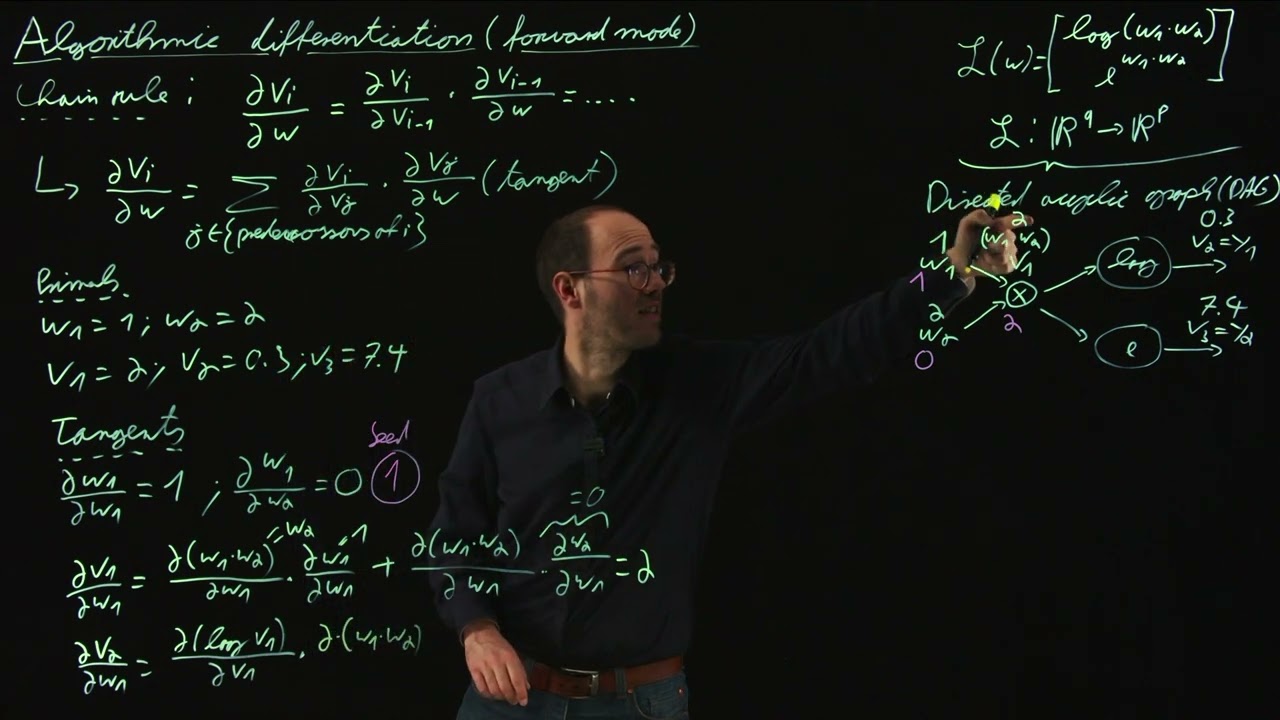 Algorithmic differentiation (forward mode)
Chain rule : ∂Vi/∂w = ∂Vi/∂Vi-1 · ∂Vi-1/∂w = ....
↳ ∂Vi/∂w = ∑ j∈{predecessors of i} ∂Vi/∂Vj · ∂Vj/∂w (tangent)
Primals
w1 = 1 ; w2 = 2
V1 = 2 ; V2 = 0.3 ; V3 = 7.4
Tangents
Seed
∂w1/∂w1 = 1 ; ∂w1/∂w2 = 0 1
= w2 1 = 0
∂V1/∂w1 = ∂(w1·w2)/∂w1 · ∂w1/∂w1 + ∂(w1·w2)/∂w1 · ∂w2/∂w1 = 2
∂V2/∂w1 = ∂(log V1)/∂V1 · ∂·(w1·w2)
L(w) = [log(w1·w2)
e^w1·w2]
L : ℝ^q → ℝ^p
Directed acyclic graph (DAG)
2 0.3
1 (w1·w2) V2 = y1
w1 V1 log
1
×
2 2 7.4
w2 e V3 = y2
0